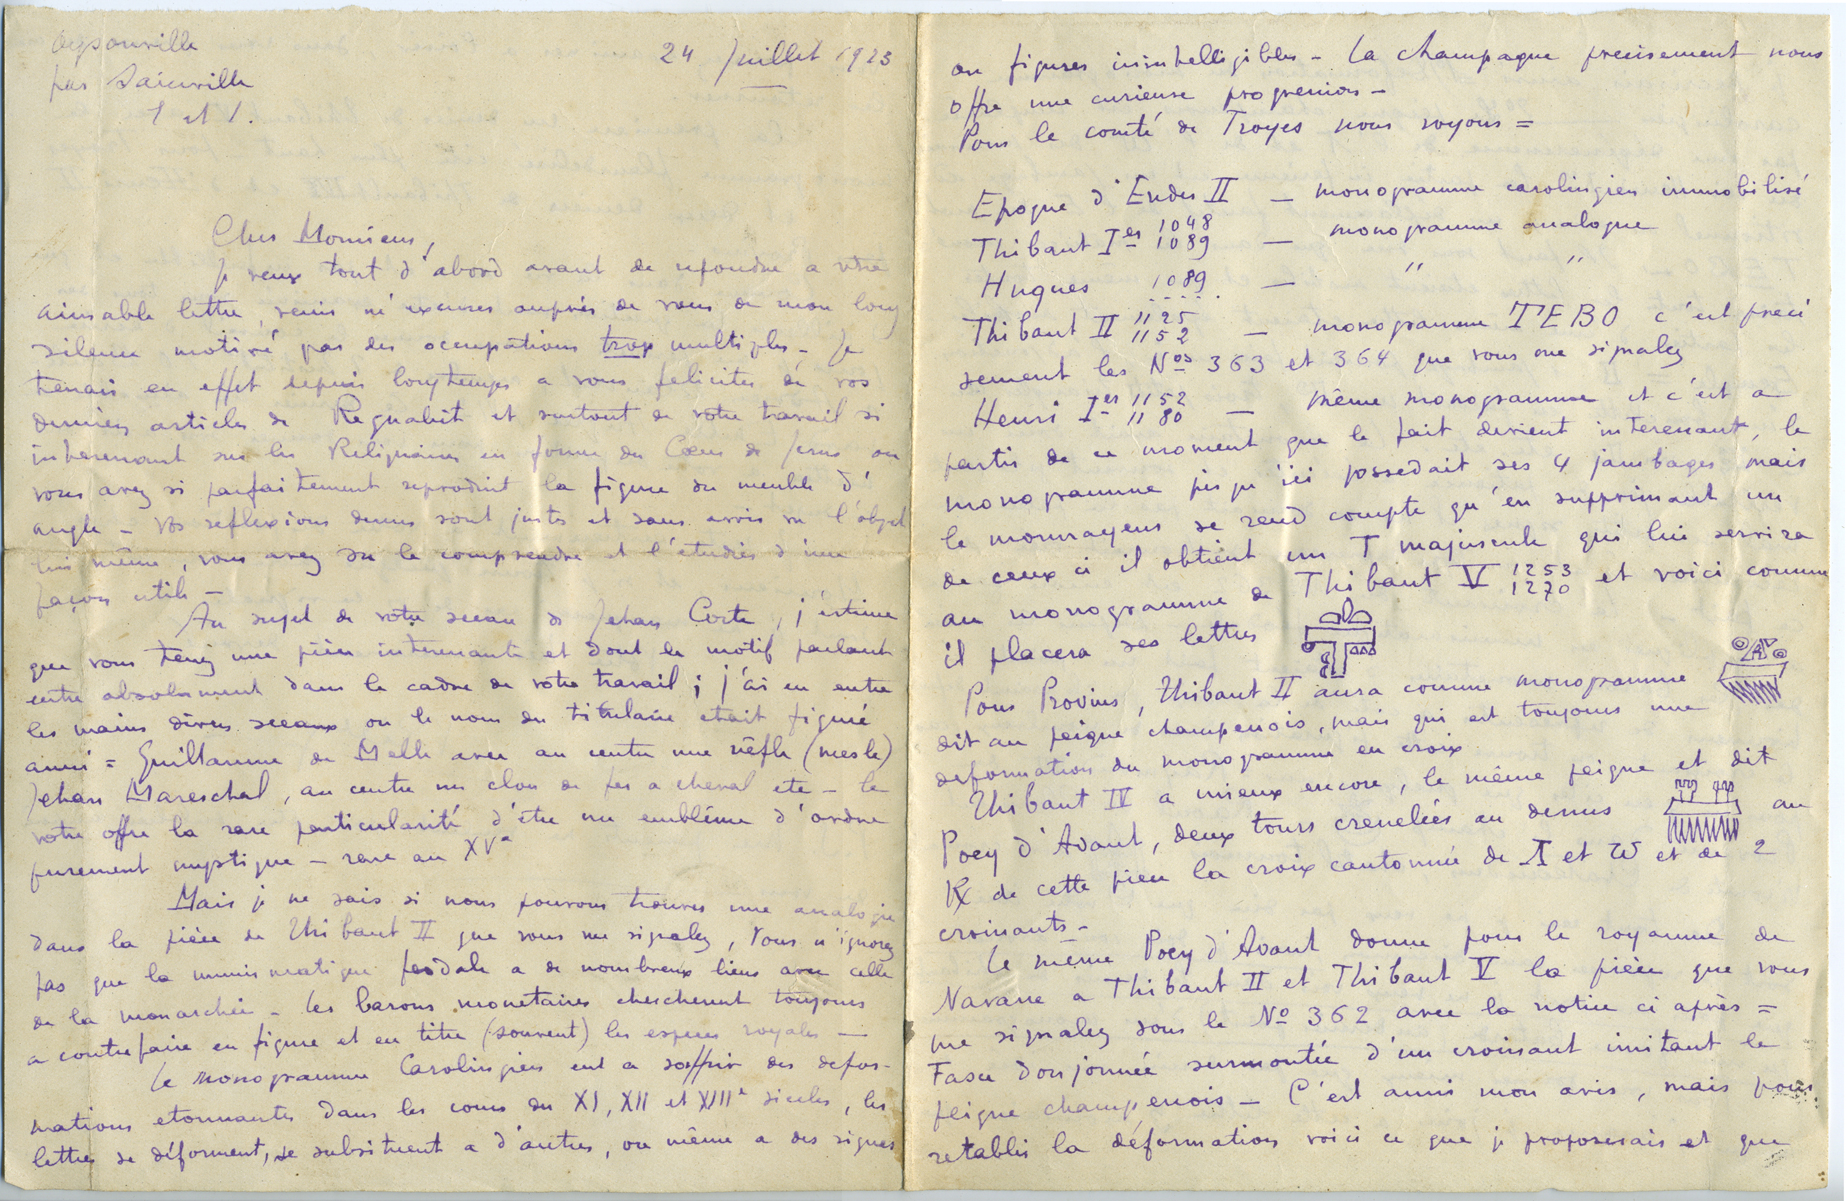 Oysonville
par Sainville
E et L.
24 Juillet 1923
Cher Monsieur,
Je veux tout d'abord avant de repondre a votre
aimable lettre, venir m'excuser auprès de vous de mon long
silence motivé par des occupations trop multiples - Je
tenais en effet depuis longtemps a vous feliciter de vos
derniers articles de Regnabit et surtout de votre travail si
interessant sur les Reliquaires en forme du Cœur de Jesus ou
vous avez si parfaitement reproduit la figure du meuble d'
angle - Vos reflexions dessus sont justes et sans avoir vu l'objet
lui même, vous avez su le comprendre et l'étudier d'une
façon utile -
Au sujet de votre sceau de Jehan Coste, j'estime
que vous tenez une pièce interessante et dont le motif parlant
entre absolument dans le cadre de votre travail ; j'ai eu entre
les mains divers sceaux ou le nom du titulaire etait figuré
ainsi = Guillaume de Melle avec au centre une nêfle (mesle)
Jehan Mareschal, au centre un clou de fer a cheval etc - le
votre offre la rare particularité d'être un emblême d'ordre
purement mystique - rare au XVe
Mais je ne sais si nous pouvons trouver une analogie
dans la pièce de Thibaut II que vous me signalez, Vous n'ignorez
pas que la numismatique feodale a de nombreux liens avec celle
de la monarchie - les barons monetaires cherchèrent toujours
a contrefaire en figure et en titre (souvent) les especes royales —
Le monogramme Carolingien eut a soffrir des defor-
mations etonnantes dans les cours du XI, XII et XIIIe siecles, les
lettres se déforment, se subsituent a d'autres, ou même a des signes
ou figures inintelligibles - La champagne precisement nous
offre une curieuse progression -
Pour le comté de Troyes nous voyons =
Epoque d'Eudes II — monogramme carolingien immobilisé
Thibaut Ier 1048 1089 — monogramme analogue
Hugues 1089 .... — " "
Thibaut II 1125 1152 — monogramme TEBO c'est preci
sement les Nos 363 et 364 que vous me signalez
Henri Ier 1152 1180 — même monogramme et c'est a
partir de ce moment que le fait devient interessant, le
monogramme jusqu'ici possedait ses 4 jambages mais
le monnayeur se rend compte qu'en supprimant un
de ceux ci il obtient un T majuscule qui lui servira
au monogramme de Thibaut V 1253 1270 et voici comme
il placera ses lettres
Pour Provins, Thibaut II aura comme monogramme
dit au peigne champenois, mais qui est toujours une
deformation du monogramme en croix
Thibaut IV a mieux encore, le même peigne et dit
Poey d'Avant, deux tours crenelées au dessus au
R de cette pièce la croix cantonnée de A et W et de 2
croissants -
Le même Poey d'Avant donne pour le royaume de
Navarre a Thibaut II et Thibaut V la pièce que vous
me signalez sous le No 362 avec la notice ci après =
Fasce donjonnée surmontée d'un croissant imitant le
peigne champenois - C'est aussi mon avis, mais pour
retablir la déformation voici ce que je proposerais et que